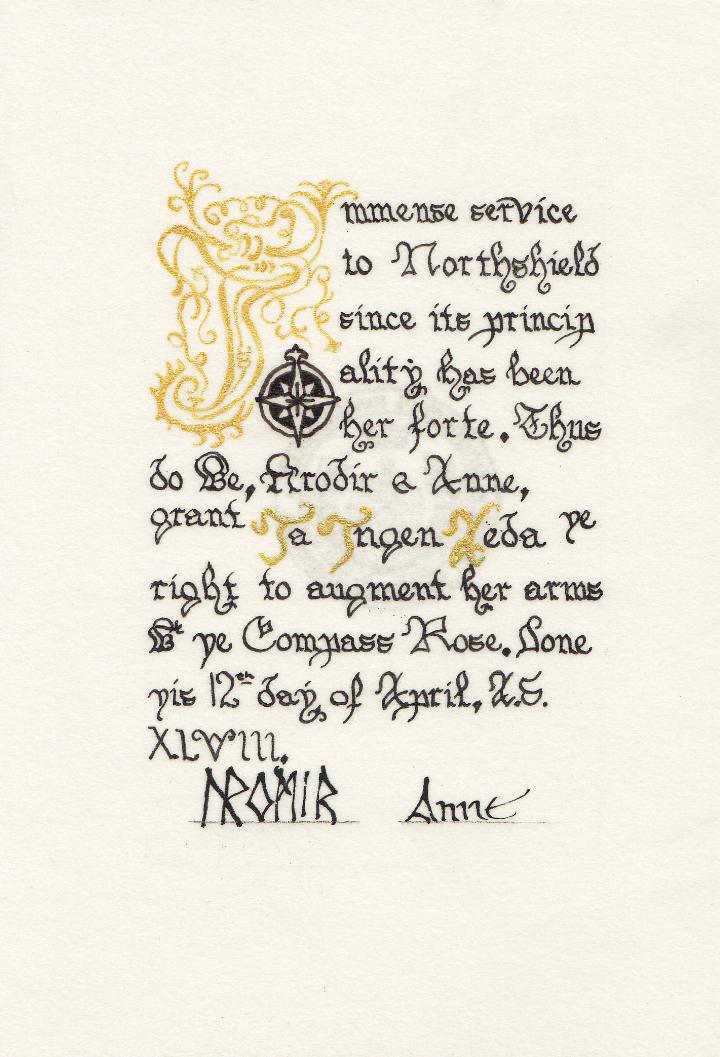 Immense service
to Northshield
since its princip
ality has been
her forte. Thus
do We, Hrodir & Anne,
grant Ta Ingen Aeda ye
right to augment her arms
Wt ye Compass Rose. Done
yis 12th day of April, A.S.
XLVIII.
Anne